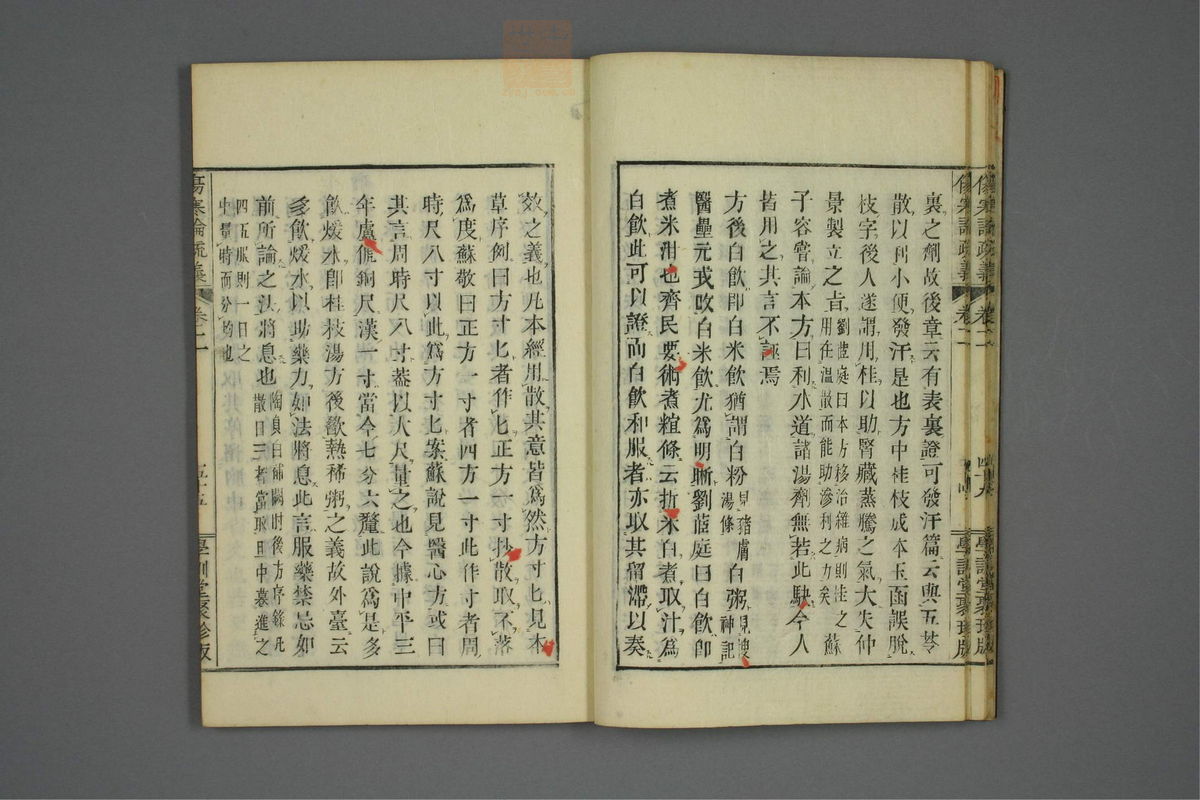 裏之劑故後章云有表裏證可發汗篇云與五苓
散以利小便發汗是也方中桂枝成本玉函誤脫
枝字後人遂謂用桂以助腎藏蒸騰之氣大失仲
景製立之旨劉茝庭曰本方移治雜病則桂之用在溫散而能助滲利之力矣蘇
子容嘗論本方曰利水道諸湯劑無若此駃今人
皆用之其言不誣焉
方後白飲即白米飲猶謂白粉見豬膚湯條白粥見搜神記
醫壘元戎改白米飲尤爲明晰劉茝庭曰白飲即
煮米泔也齊民要術煮䊦條云折米白煮取汁爲
白飲此可以證而白飲和服者亦取其留滯以奏
效之義也凡本經用散其意皆爲然方寸匕見本
草序例曰方寸匕者作匕正方一寸抄散取不落
爲度蘇敬曰正方一寸者四方一寸此作寸者周
時尺八寸以此爲方寸匕案蘇說見醫心方或曰
其言周時尺八寸蓋以大尺量之也今據中平三
年慮俿銅尺漢一寸當今七分六釐此說爲是多
飲煖水即桂枝湯方後歠熱稀粥之義故外臺云
多飲煖水以助藥力如法將息此言服藥禁忌如
前所論之法將息也陶貞白補闕肘後方序錄凡散日三者當取旦中暮進之
四五服則一日之中量時而分均也
傷寒論疏義
卷二
四十九
學訓堂聚珍版
傷寒論疏義
卷二
五十五
學訓堂聚珍版